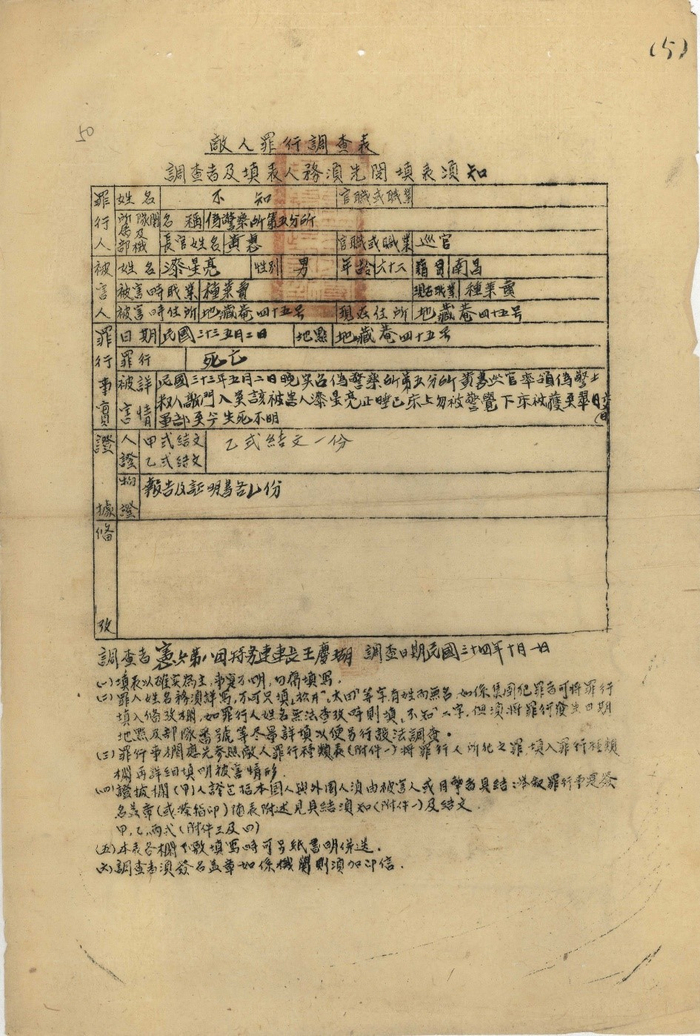 (5)
50
敵人罪行調查表
調查者及填表人務須先閱填表須知
罪行人 姓名 不知 官職或職業
所屬部隊及機關 名稱 偽警察所第五分所
長官姓名 黃 官職或職業 巡官
被害人 姓名 漆星亮 性別 男 年齡 六十二 籍貫 南昌
被害時職業 種菜賣 現在職業 種菜賣
被害時住所 地藏菴四十五号 現在住所 地藏菴四十五号
罪行事實 日期 民國三十三五月二日 地點 地藏菴四十五号
罪行 死亡
被害詳情 民國三十三年五月二日晚 偽警察所第五分所黃 巡官率領偽警士
敲門入 該被害人漆星亮正睡已床上勿被驚覺下床被獲至
部至今生死不明
證據 人證 甲式結文 乙式結文一份
乙式結文
物證 報告及証明書各乙份
備攷
調查者 憲兵第八團特务連連長王 調查日期民國三十四年十月一日
(一)填表以確实為主,事实不明,勿得填寫。
(二)罪人姓名務須詳写,不可只填,松井,太田,等字,有姓而無名,如係集團犯罪者可將罪行
填入備攷欄,如罪行人姓名無法查攷時則填,不知,二字,但須將罪行發生日期
地點及部隊番號等尽量詳填以便另行設法調查。
(三)罪行事实欄應先參照敵人罪行種類表(附件一)將罪行人所犯之罪,填入罪行種類
欄再詳細填明被害情形
(四)證據欄(甲)人證包括本國人與外國人須由被害人或目擊者具結 罪行事实簽
名蓋章(或捺指印)備表附述見具結須知(附件一)及結文
甲,乙,丙式(附件三及四)
(五)本表各欄不敷填寫時可另紙書明併送。
(六)調查者須簽名蓋章如係機關則須加印信。